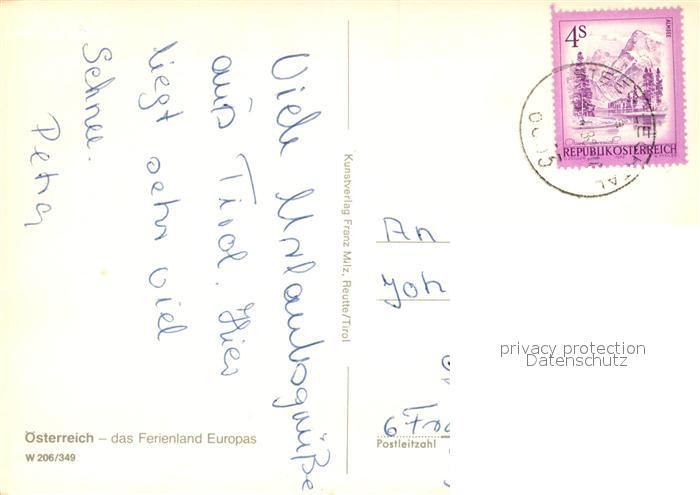 Viele Urlaubsgrüße
aus Tirol. Hier
liegt sehr viel
Schnee.
Petra
Österreich – das Ferienland Europas
W 206/349
Kunstverlag Franz Milz, Reutte/Tirol
4S
ALMSEE
REPUBLIK ÖSTERREICH
An
Joh
6 Fra
Postleitzahl
privacy protection
Datenschutz